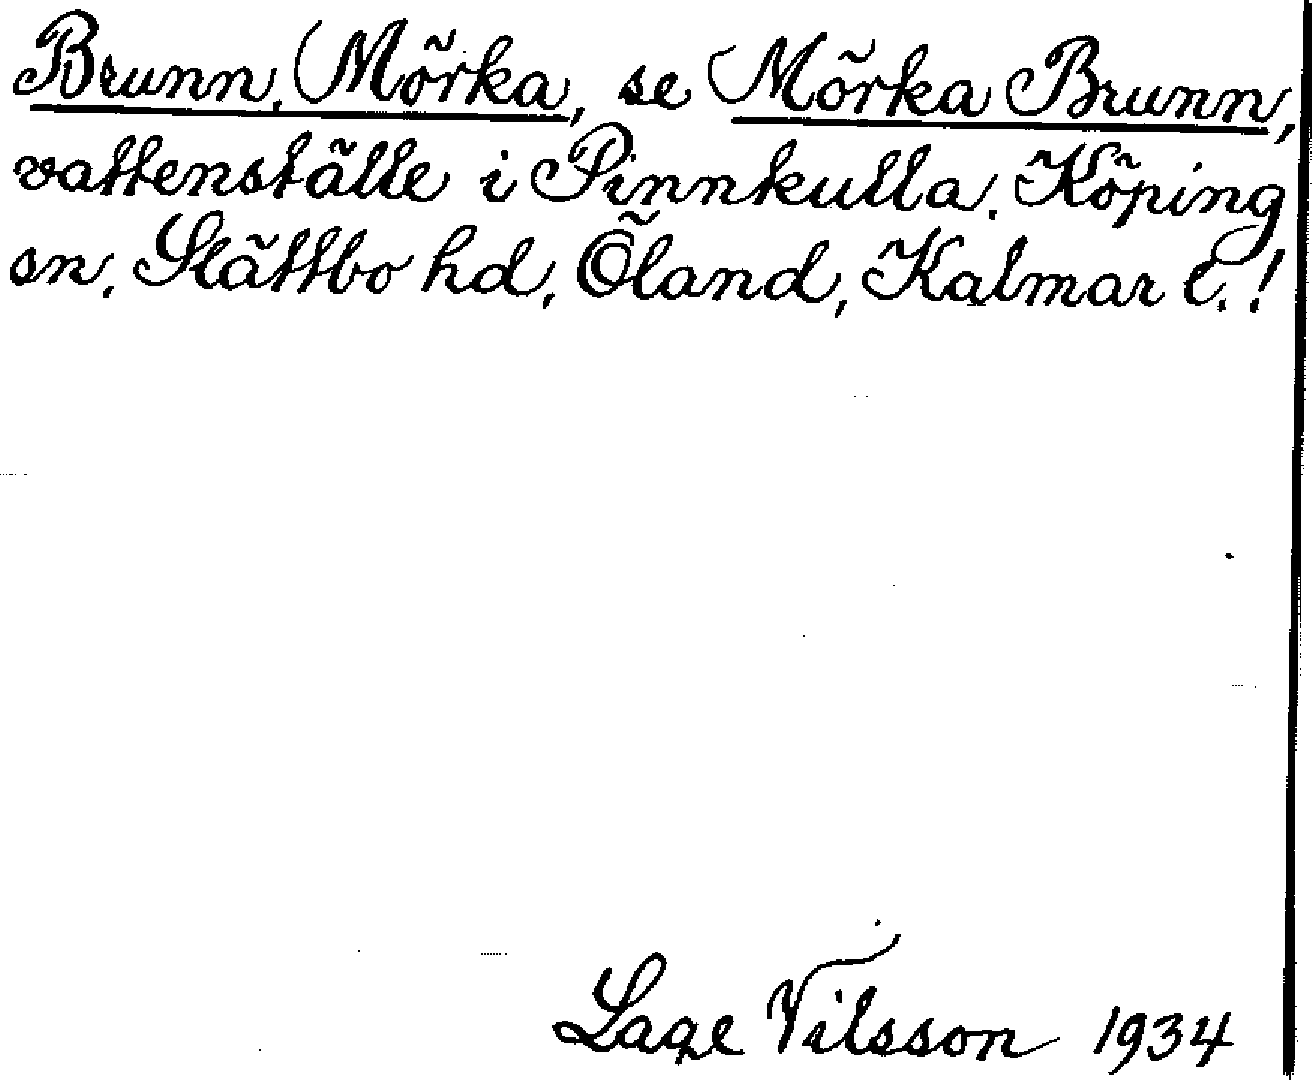 Brunn, Mörka, se Mörka Brunn,
vattenställe i Pinnkulla. Köping
sn, Slättbo hd, Öland, Kalmar l.!
Lage Nilsson 1934